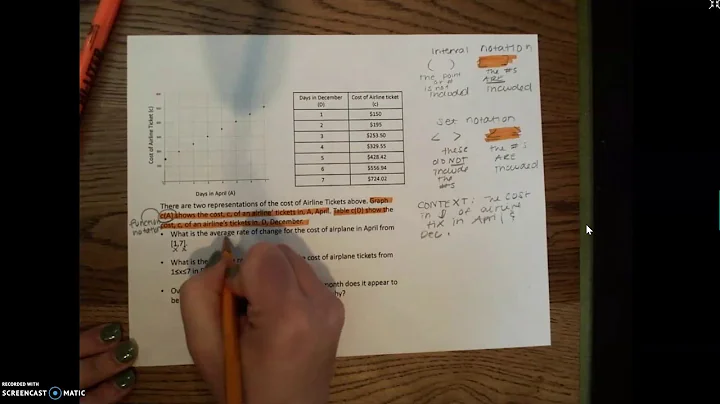 Cost of Airline Ticket (c)
Days in April (A)
Days in December (D) Cost of Airline ticket (c)
1 $150
2 $195
3 $253.50
4 $329.55
5 $428.42
6 $556.94
7 $724.02
There are two representations of the cost of Airline Tickets above. Graph
c(A) shows the cost, c, of an airline' tickets in, A, April. Table c(D) show the
cost, c, of an airline's tickets in, D, December.
function
notation
• What is the average rate of change for the cost of airplane in April from
[1,7].
x x
• What is the
cost of airplane tickets from
1≤x≤7 in
• Ov
month does it appear to
be
hy?
interval notation
( )
the point
is not
included
the #s
ARE
included
set notation
< >
these
did NOT
include
the
#s
the #'s
ARE
included
CONTEXT: the cost
in $ of airline
tix in April &
Dec.
RECORDED WITH
SCREENCAST MATIC